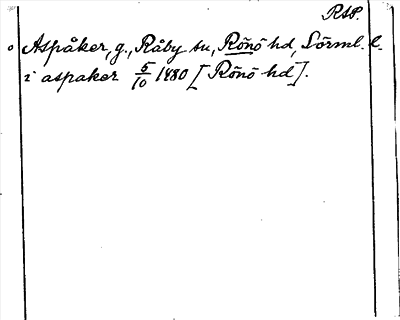 RSP.
Aspåker, g., Råby sn, Rönö hd, Sörml. l.
i aspaker 5/10 1480 [Rönö hd].